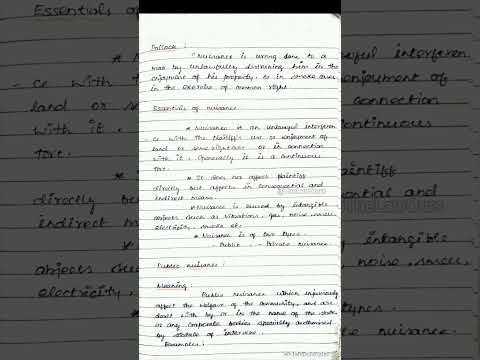 Essentials o
Pollock :
"Nuisance is wrong done to a
man by unlawfully disturbing him in the
enjoyment of his property, or in some cases
in the exercise of common right
Essentials of nuisance
* Nuisance is an unlawful interferen
ce with the Plaintiff's use or enjoyment of
land or some right over or in connection
with it. Generally it is a continuous
tort.
* It does not affect plaintiff
directly but affects in consequential and
indirect means.
* Nuisance is caused by intangible
objects such as vibrations, gas, noise, smell,
electricity, smoke etc
* Nuisance is of two types.
- Public - Private nuisance.
Public nuisance :
Meaning :
Public nuisance which injuriously
affect the welfare of the community, and are
dealt with by or in the name of the state
or any corporate bodies specially authorised
by statute of interview.
Examples :